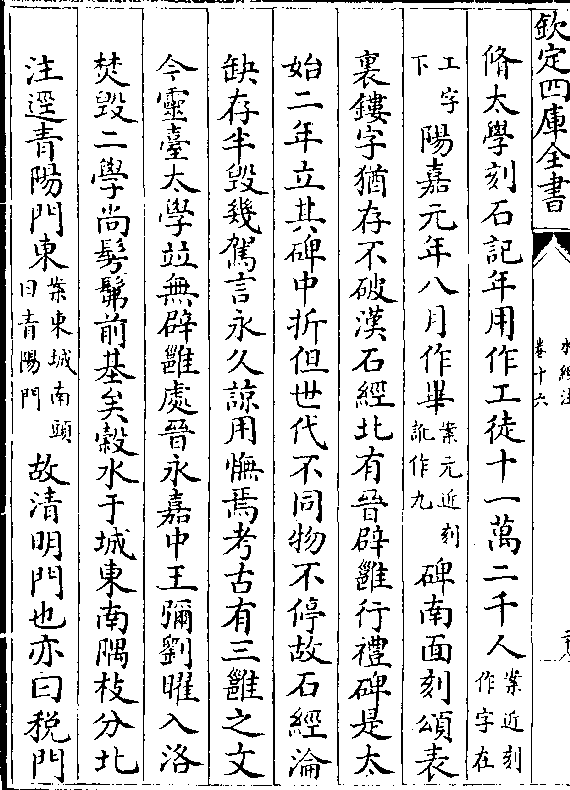 欽定四庫全書
水經注
卷十六
脩太學刻石記年用作工徒十一萬二千人案近刻作字在
工字下陽嘉元年八月作畢案元近刻訛作九碑南面刻頌表
裏鏤字猶存不破漢石經北有晉辟雝行禮碑是太
始二年立其碑中折但世代不同物不停故石經淪
缺存半毀幾駕言永久諒用憮焉考古有三雝之文
今靈臺太學竝無辟雝處晉永嘉中王彌劉曜入洛
焚毀二學尚髣髴前基矣穀水于城東南隅枝分北
注逕青陽門東案東城南頭曰青陽門故清明門也亦曰稅門